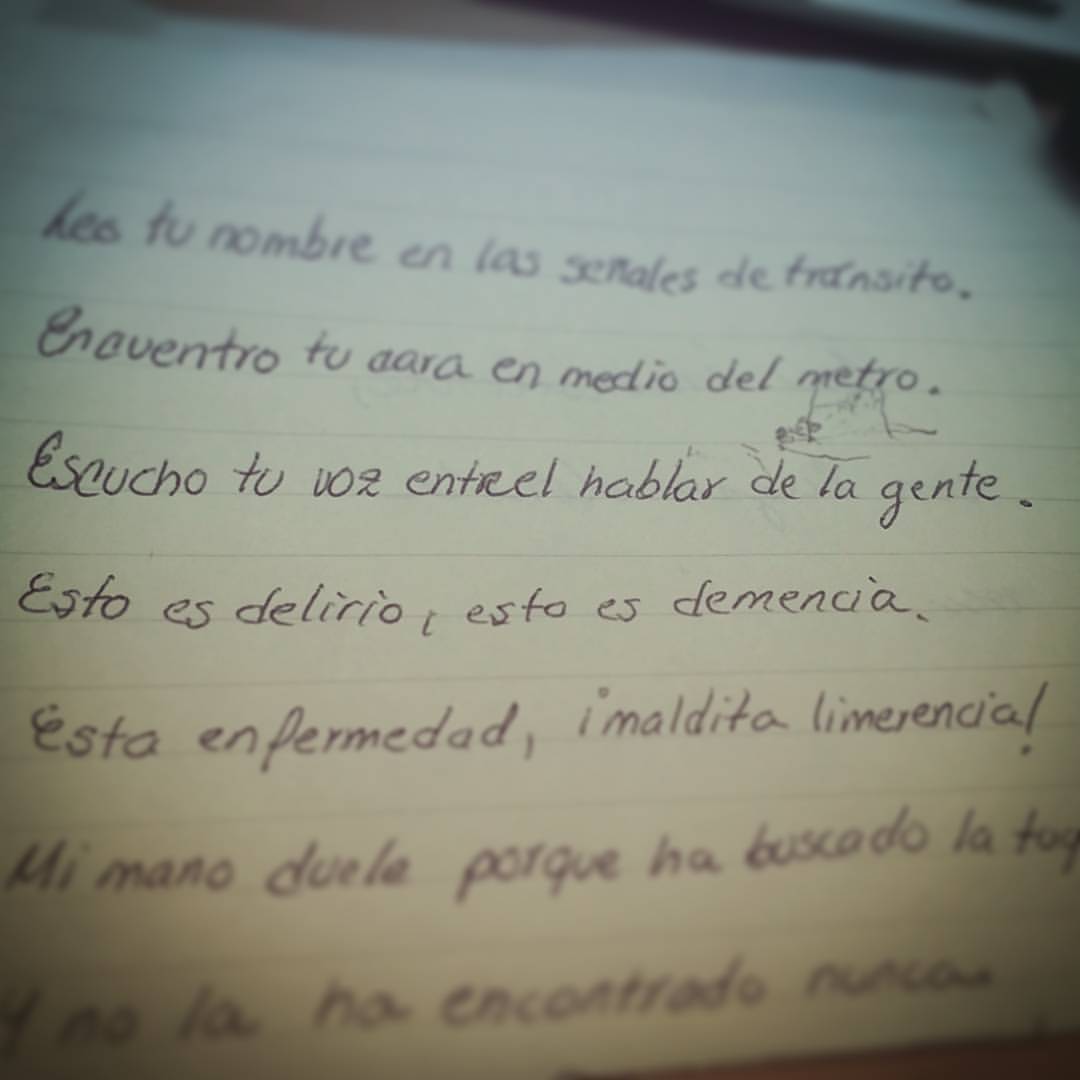 Leo tu nombre en las señales de tránsito.
Encuentro tu cara en medio del metro.
Escucho tu voz entre el hablar de la gente.
Esto es delirio, esto es demencia.
Esta enfermedad, ¡maldita limerencia!
Mi mano duele porque ha buscado la tuy
Y no la ha encontrado nunca